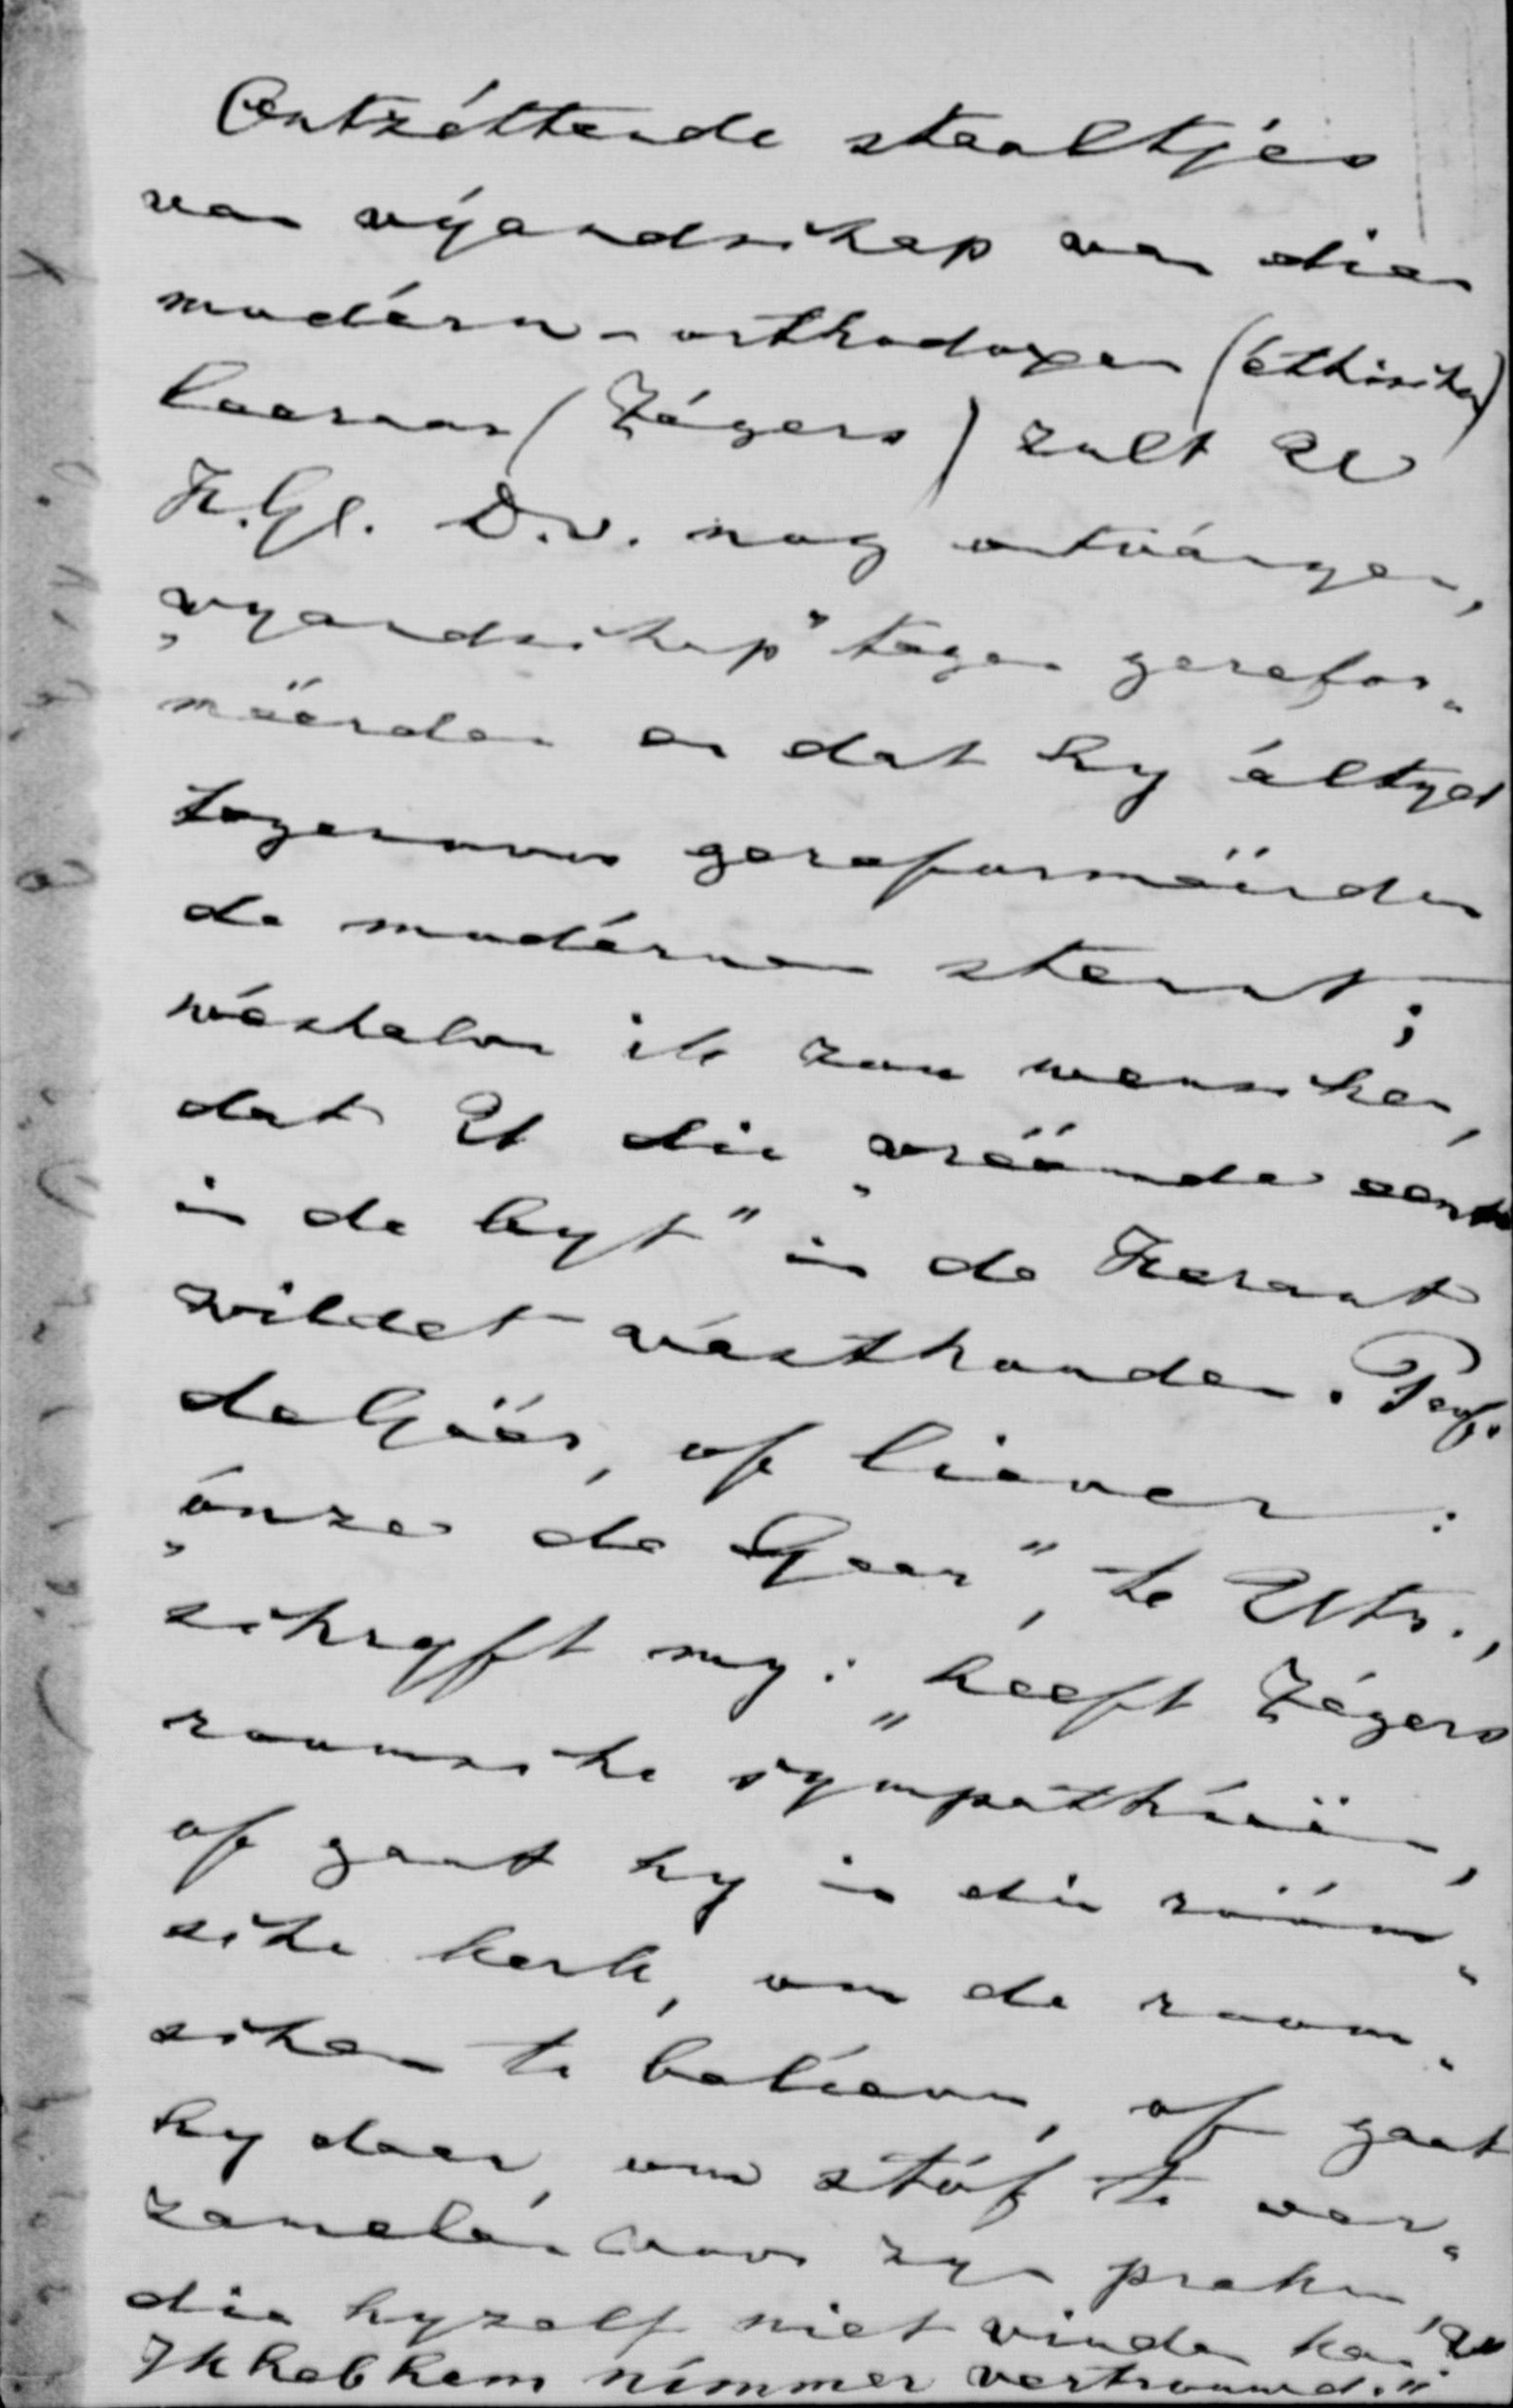 Ontzéttende staaltjes
van vÿandschap van dien
modérn-orthodoxen (éthischen)
leeraar (Zégers) zult Uw
H.Gel. D.v. nog ontvángen,
„vyandschap" tegen gerefor„
méérden en dat hy áltyd
tegenover gereforméérden
de modérnen steunt;
wéshalve ik zou wenschen,
dat U die „vrééмde eend
in de byt" in de Heraut
wildet vásthouden. Prof.
de Géér, of liever:
„ónze de Geer", te Utr.,
schryft my: „heeft Zégers
roomsche sympathieën,
of gaat hy in die róóm„
sche kerk, om de room„
schen te belíeven, of gaat
hy daar, om stóf te ver„
zamelen voor zyn preken
die hyzelf niet vinden kan?
Ik heb hem nimmer vertrouwd."